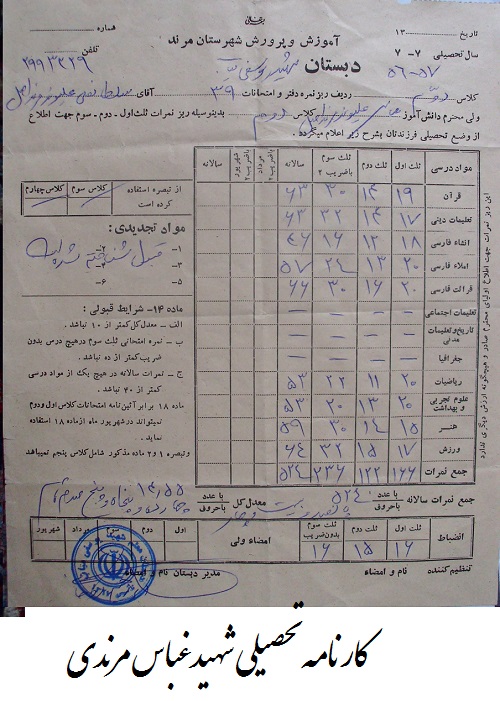 شماره
تاریخ ۱۳
آموزش و پرورش شهرستان مرند
سال تحصیلی ۷-۷ ۵۶-۵۷
تلفن
دبستان
کلاس دوم ردیف ریز نمره دفتر و امتحانات ۳۹ آقای
ولی محترم دانش‌آموز کلاس دوم بدینوسیله ریز نمرات ثلث اول - دوم - سوم جهت اطلاع
از وضع تحصیلی فرزندتان بشرح زیر اعلام میگردد.
مواد درسی ثلث اول ثلث دوم ثلث سوم با ضریب ۲ سالانه خرداد با ضریب ۲ شهریور با ضریب ۲ سالانه
قرآن ۱۹ ۱۴ ۳۰ ۶۳
تعلیمات دینی ۱۷ ۱۴ ۳۲ ۶۳
انشاء فارسی ۱۸ ۱۲ ۱۶ ۴۶
املاء فارسی ۲۰ ۱۳ ۲۴ ۵۷
قرائت فارسی ۲۰ ۱۶ ۳۰ ۶۶
تعلیمات اجتماعی — — — —
تاریخ و تعلیمات مدنی — — — —
جغرافیا — — — —
ریاضیات ۲۰ ۱۱ ۲۲ ۵۳
علوم تجربی و بهداشت ۲۰ ۱۳ ۲۰ ۵۳
هنر ۱۵ ۱۴ ۳۰ ۵۹
ورزش ۱۷ ۱۵ ۳۲ ۶۴
جمع نمرات ۱۶۶ ۱۲۲ ۲۳۶ ۵۲۴
از تبصره استفاده کرده است کلاس سوم کلاس چهارم
مواد تجدیدی:
۱- ۲-
۳- ۴-
۵- ۶-
قبول شناخته شده است
ماده ۱۴- شرایط قبولی:
الف - معدل کل کمتر از ۱۰ نباشد.
ب - نمره امتحانی ثلث سوم در هیچ درس بدون
ضریب کمتر از ده نباشد.
ج - نمرات سالانه در هیچ یک از مواد درسی
کمتر از ۲۰ نباشد.
ماده ۱۸ برابر آئین‌نامه امتحانات کلاس اول و دوم
نمیتواند در شهریور ماه از ماده ۱۸ استفاده
نماید.
وتبصره ۱ و ۲ ماده مذکور شامل کلاس پنجم نمیباشد
این ریز نمرات جهت اطلاع اولیای محترم صادر و هیچگونه ارزش دیگری ندارد
جمع نمرات سالانه با عدد ۵۲۴ باحروف پانصد و بیست و چهار معدل کل با عدد ۱۴/۵۵ باحروف چهارده و پنجاه و پنج صدم
انضباط ثلث اول ثلث دوم ثلث سوم بدون ضریب امضاء ولی اول دوم سوم خرداد شهریور
۱۶ ۱۵ ۱۶
تنظیم کننده نام و امضاء مدیر دبستان نام و امضاء
کارنامه تحصیلی شهید عباس مرندی